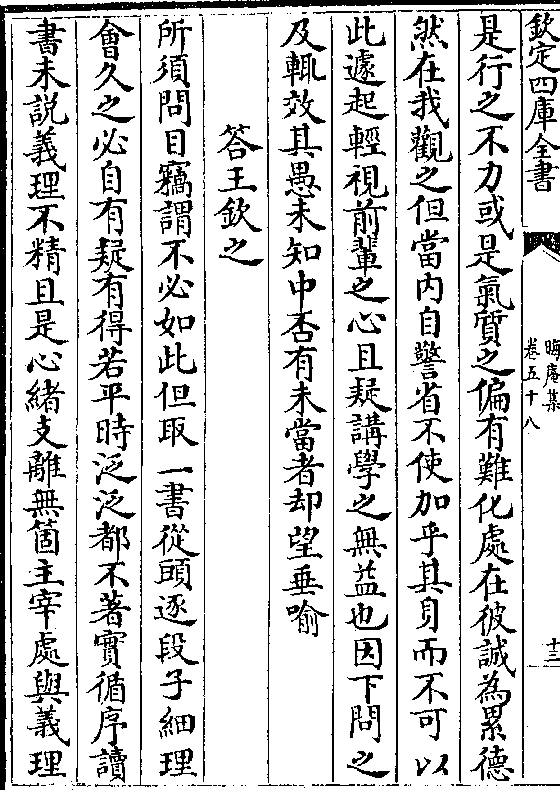 欽定四庫全書
晦庵集
卷五十八
十三
是行之不力或是氣質之偏有難化處在彼誠為累德
然在我觀之但當内自警省不使加乎其身而不可以
此遽起輕視前輩之心且疑講學之無益也因下問之
及輒效其愚未知中否有未當者却望垂喻
答王欽之
所須問目竊謂不必如此但取一書從頭逐段子細理
會久之必自有疑有得若平時泛泛都不著實循序讀
書未説義理不精且是心緒支離無箇主宰處與義理